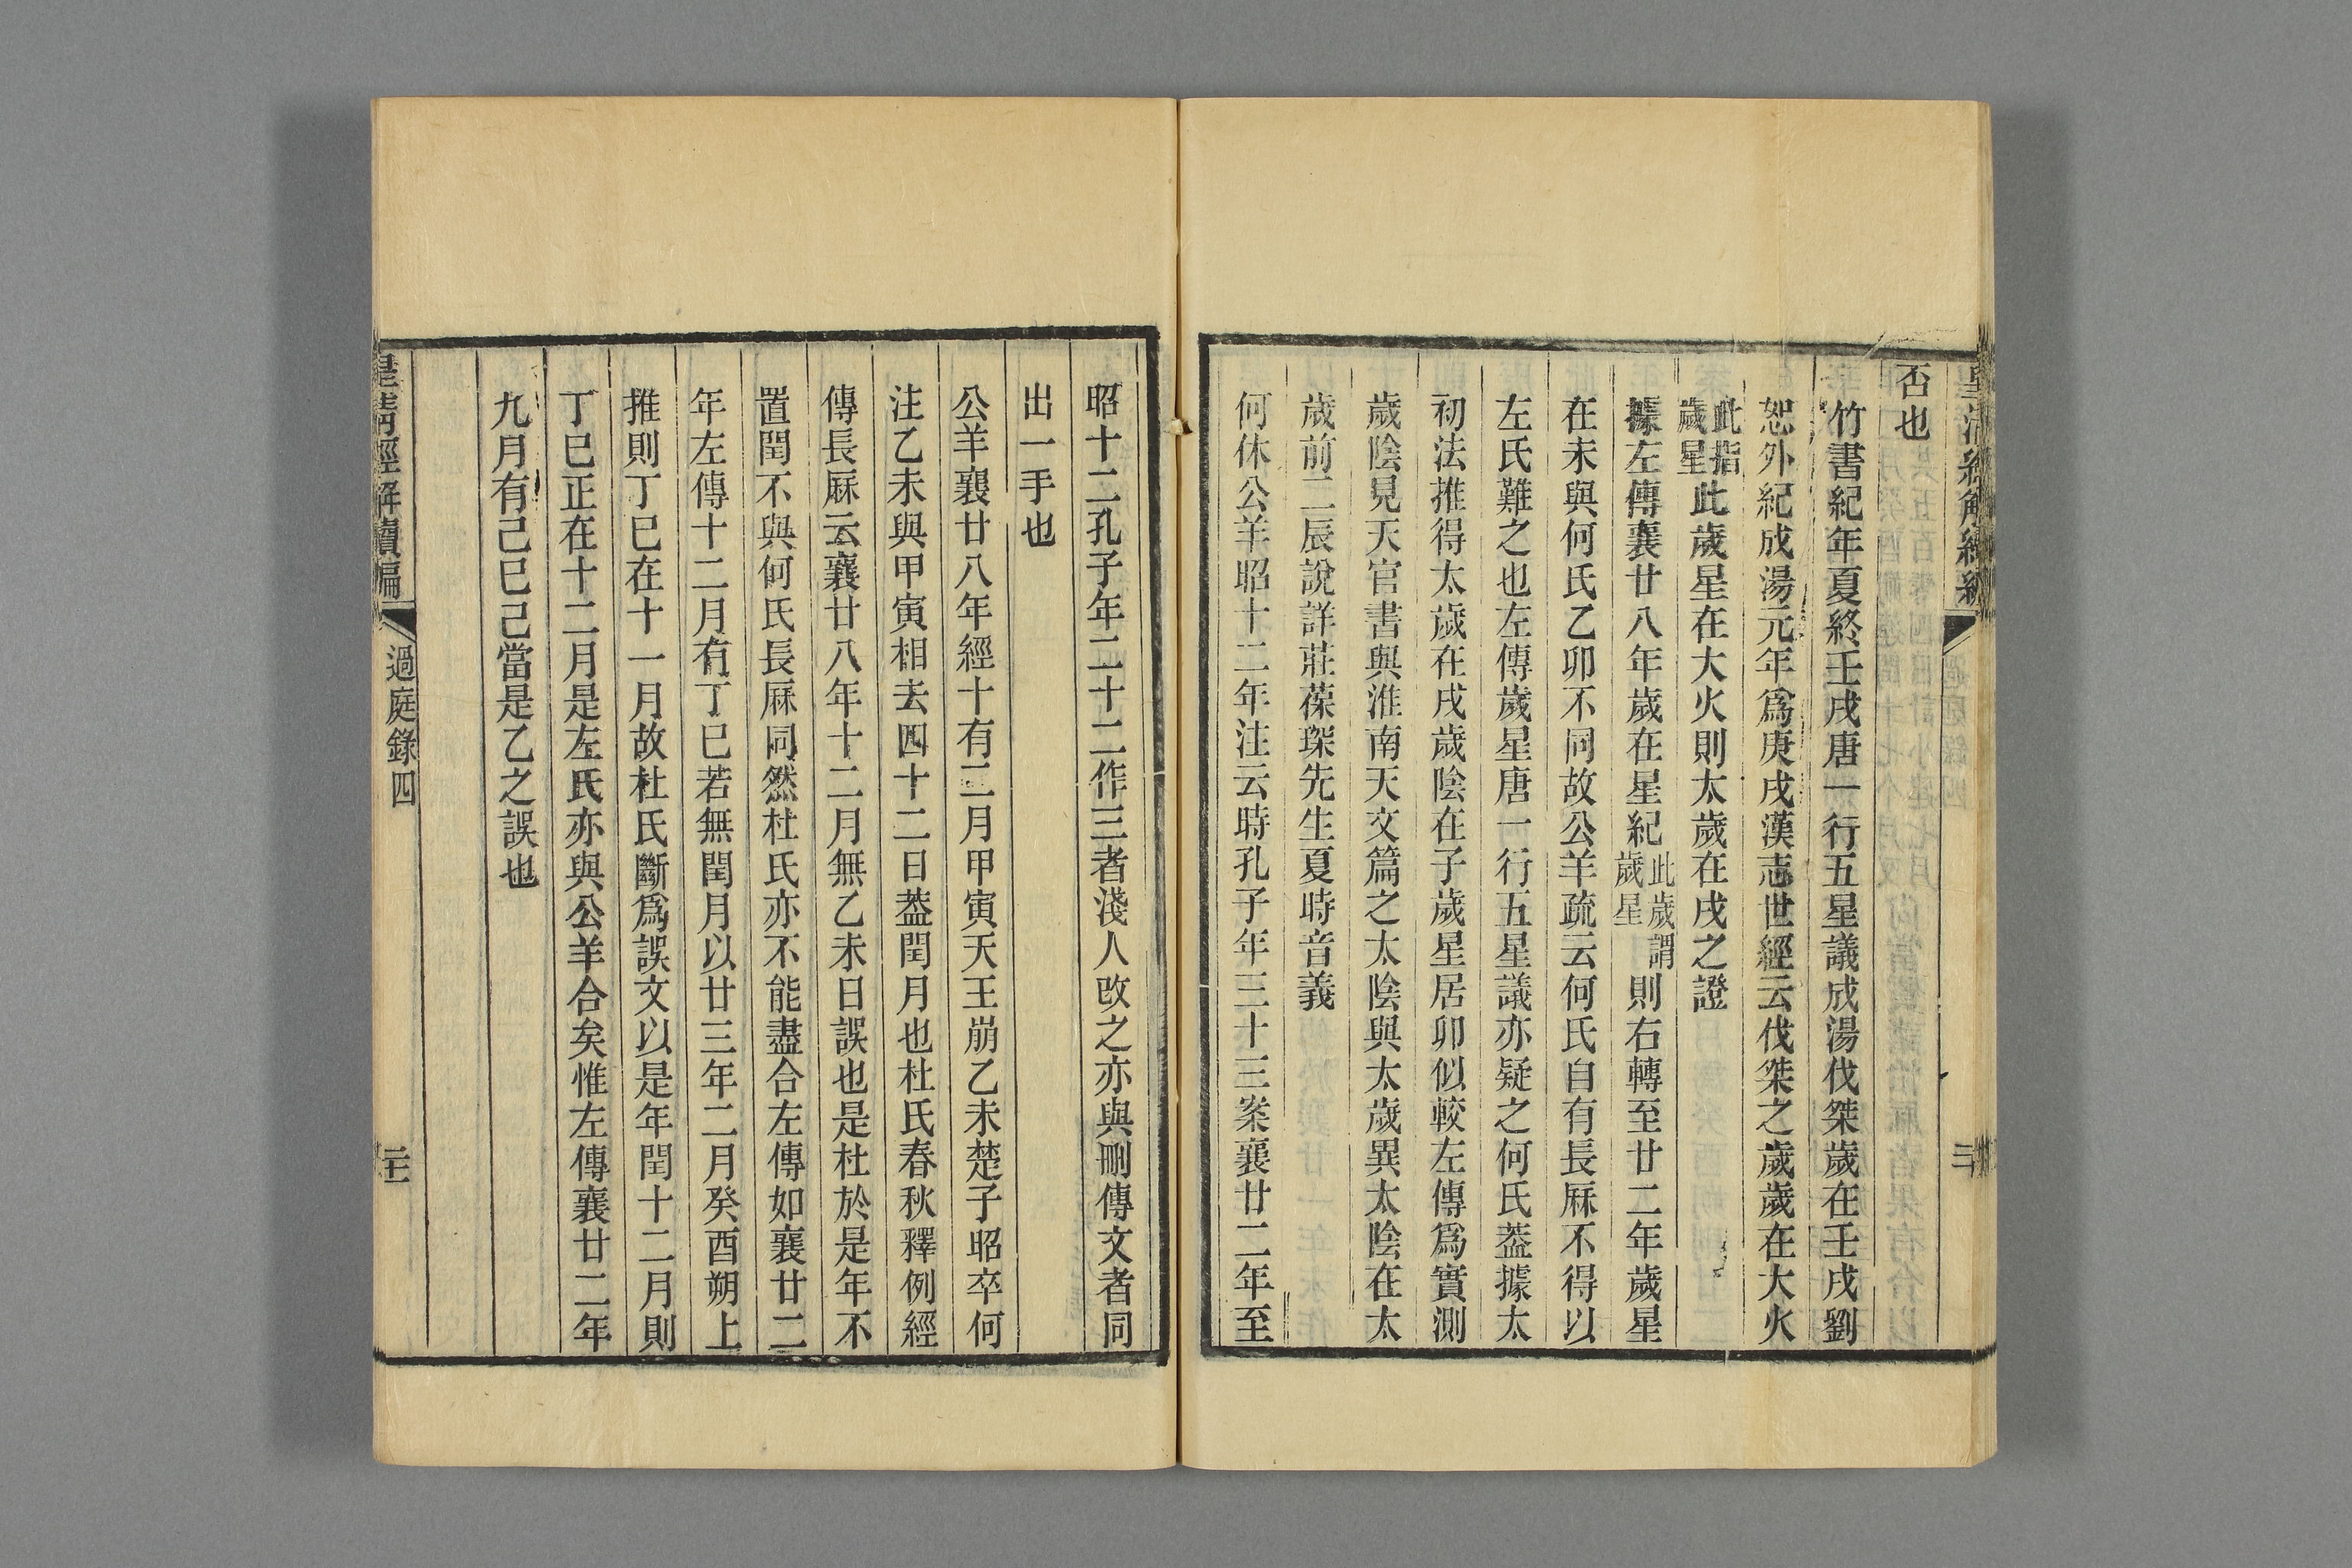 否也
竹書紀年夏終壬戌唐一行五星議成湯伐桀歲在壬戌劉
恕外紀成湯元年爲庚戌漢志世經云伐桀之歲歲在大火
此指歲星此歲星在大火則太歲在戌之證
據左傳襄廿八年歲在星紀此歲謂歲星則右轉至廿二年歲星
在未與何氏乙卯不同故公羊疏云何氏自有長厤不得以
左氏難之也左傳歲星唐一行五星議亦疑之何氏葢據太
初法推得太歲在戌歲陰在子歲星居卯似較左傳爲實測
歲陰見天官書與淮南天文篇之太陰與太歲異太陰在太
歲前二辰說詳莊葆琛先生夏時音義
何休公羊昭十二年注云時孔子年三十三案襄廿二年至
昭十二孔子年二十二作三者淺人改之亦與刪傳文者同
出一手也
公羊襄廿八年經十有二月甲寅天王崩乙未楚子昭卒何
注乙未與甲寅相去四十二日葢閏月也杜氏春秋釋例經
傳長厤云襄廿八年十二月無乙未日誤也是杜於是年不
置閏不與何氏長厤同然杜氏亦不能盡合左傳如襄廿二
年左傳十二月有丁巳若無閏月以廿三年二月癸酉朔上
推則丁巳在十一月故杜氏斷爲誤文以是年閏十二月則
丁巳正在十二月是左氏亦與公羊合矣惟左傳襄廿二年
九月有己巳己當是乙之誤也
皇淸經解續編
過庭錄四